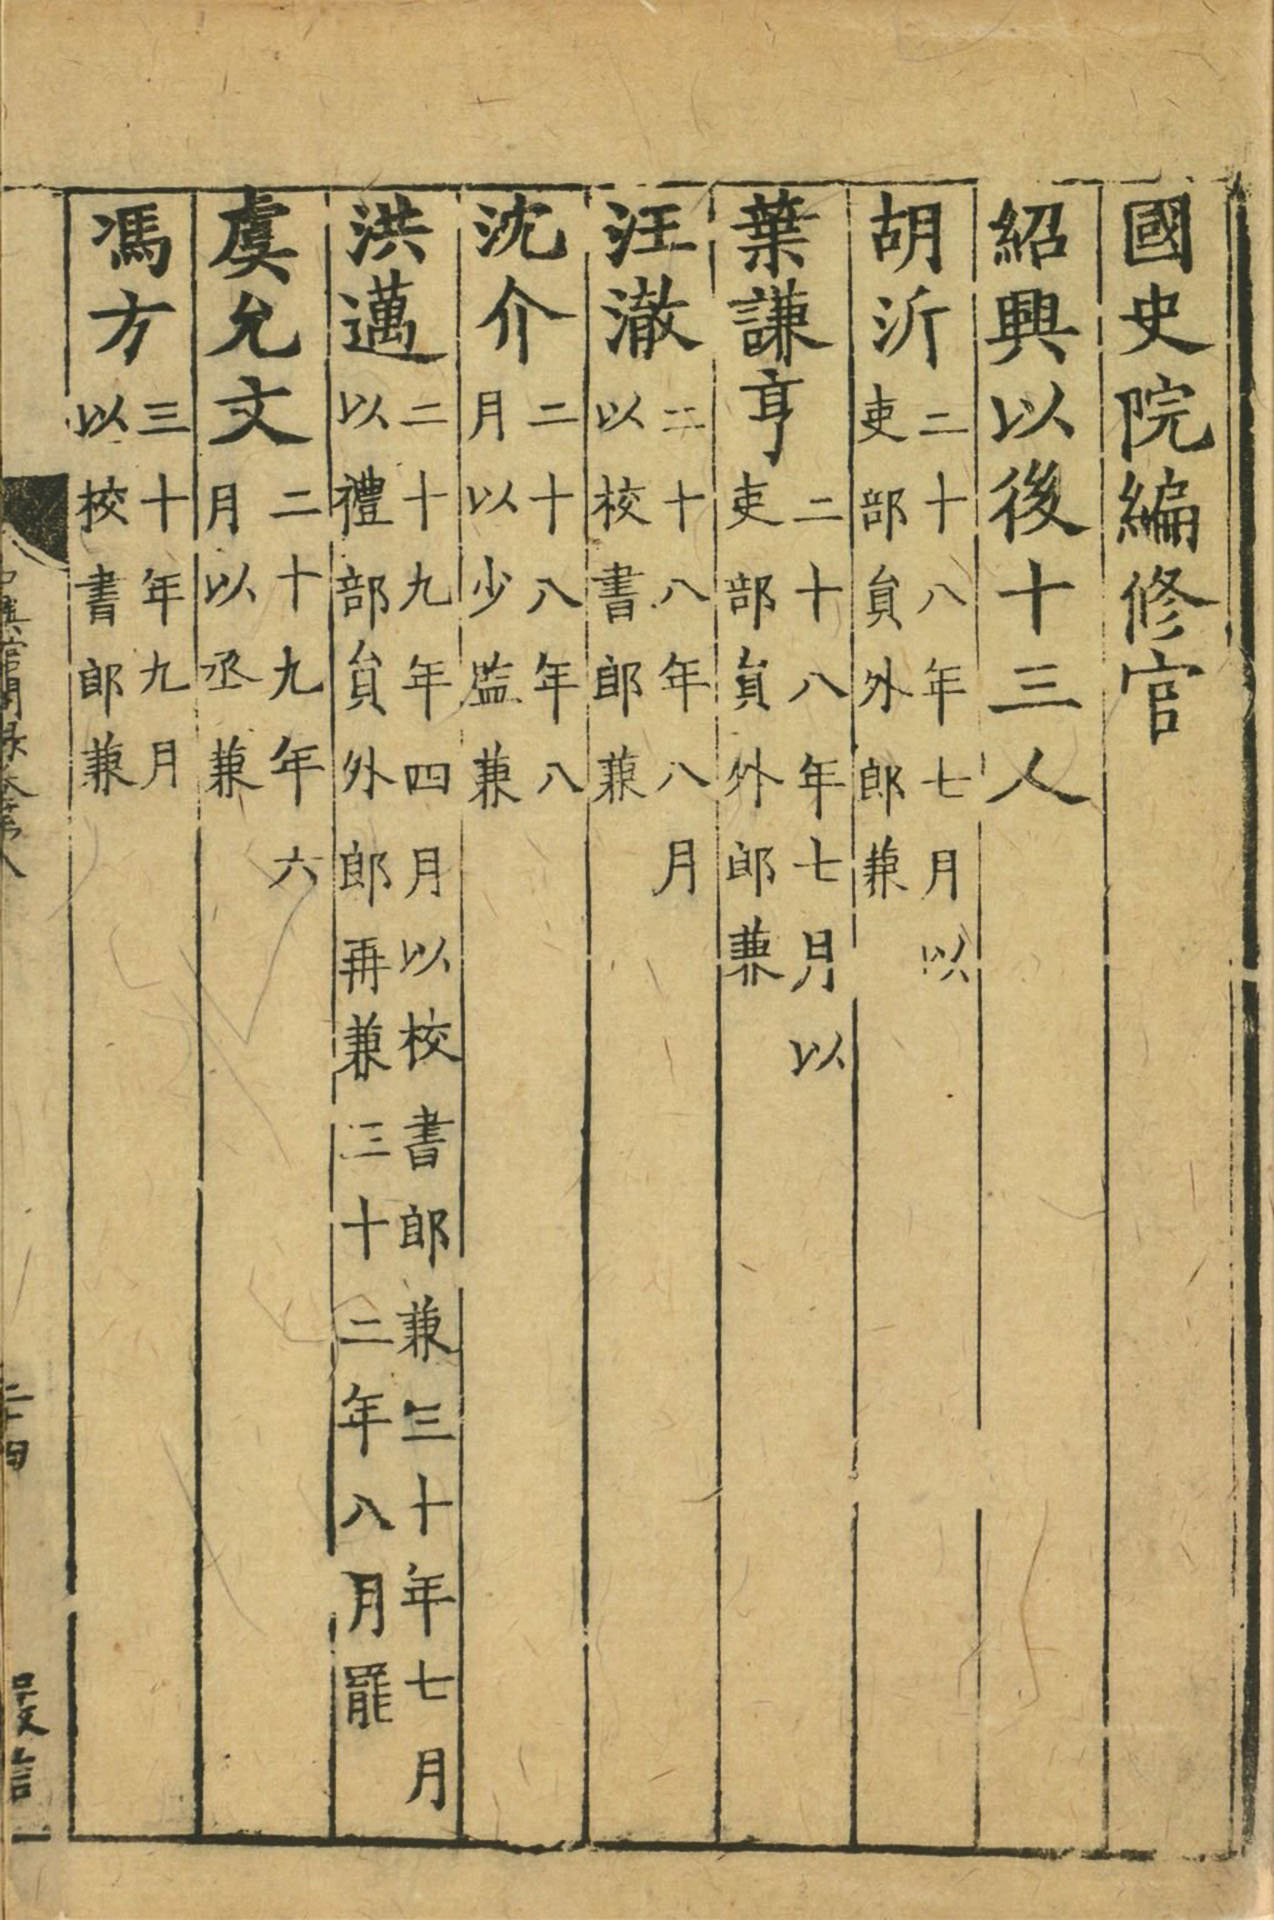 國史院編修官
紹興以後十三人
胡沂二十八年七月以
吏部貟外郎兼
葉謙亨二十八年七月以
吏部貟外郎兼
汪澈二十八年八月
以校書郎兼
沈介二十八年八
月以少監兼
洪邁二十九年四月以校書郎兼三十年七月
以禮部貟外郎再兼三十二年八月罷
虞允文二十九年六
月以丞兼
馮方三十年九月
以校書郎兼
二十四